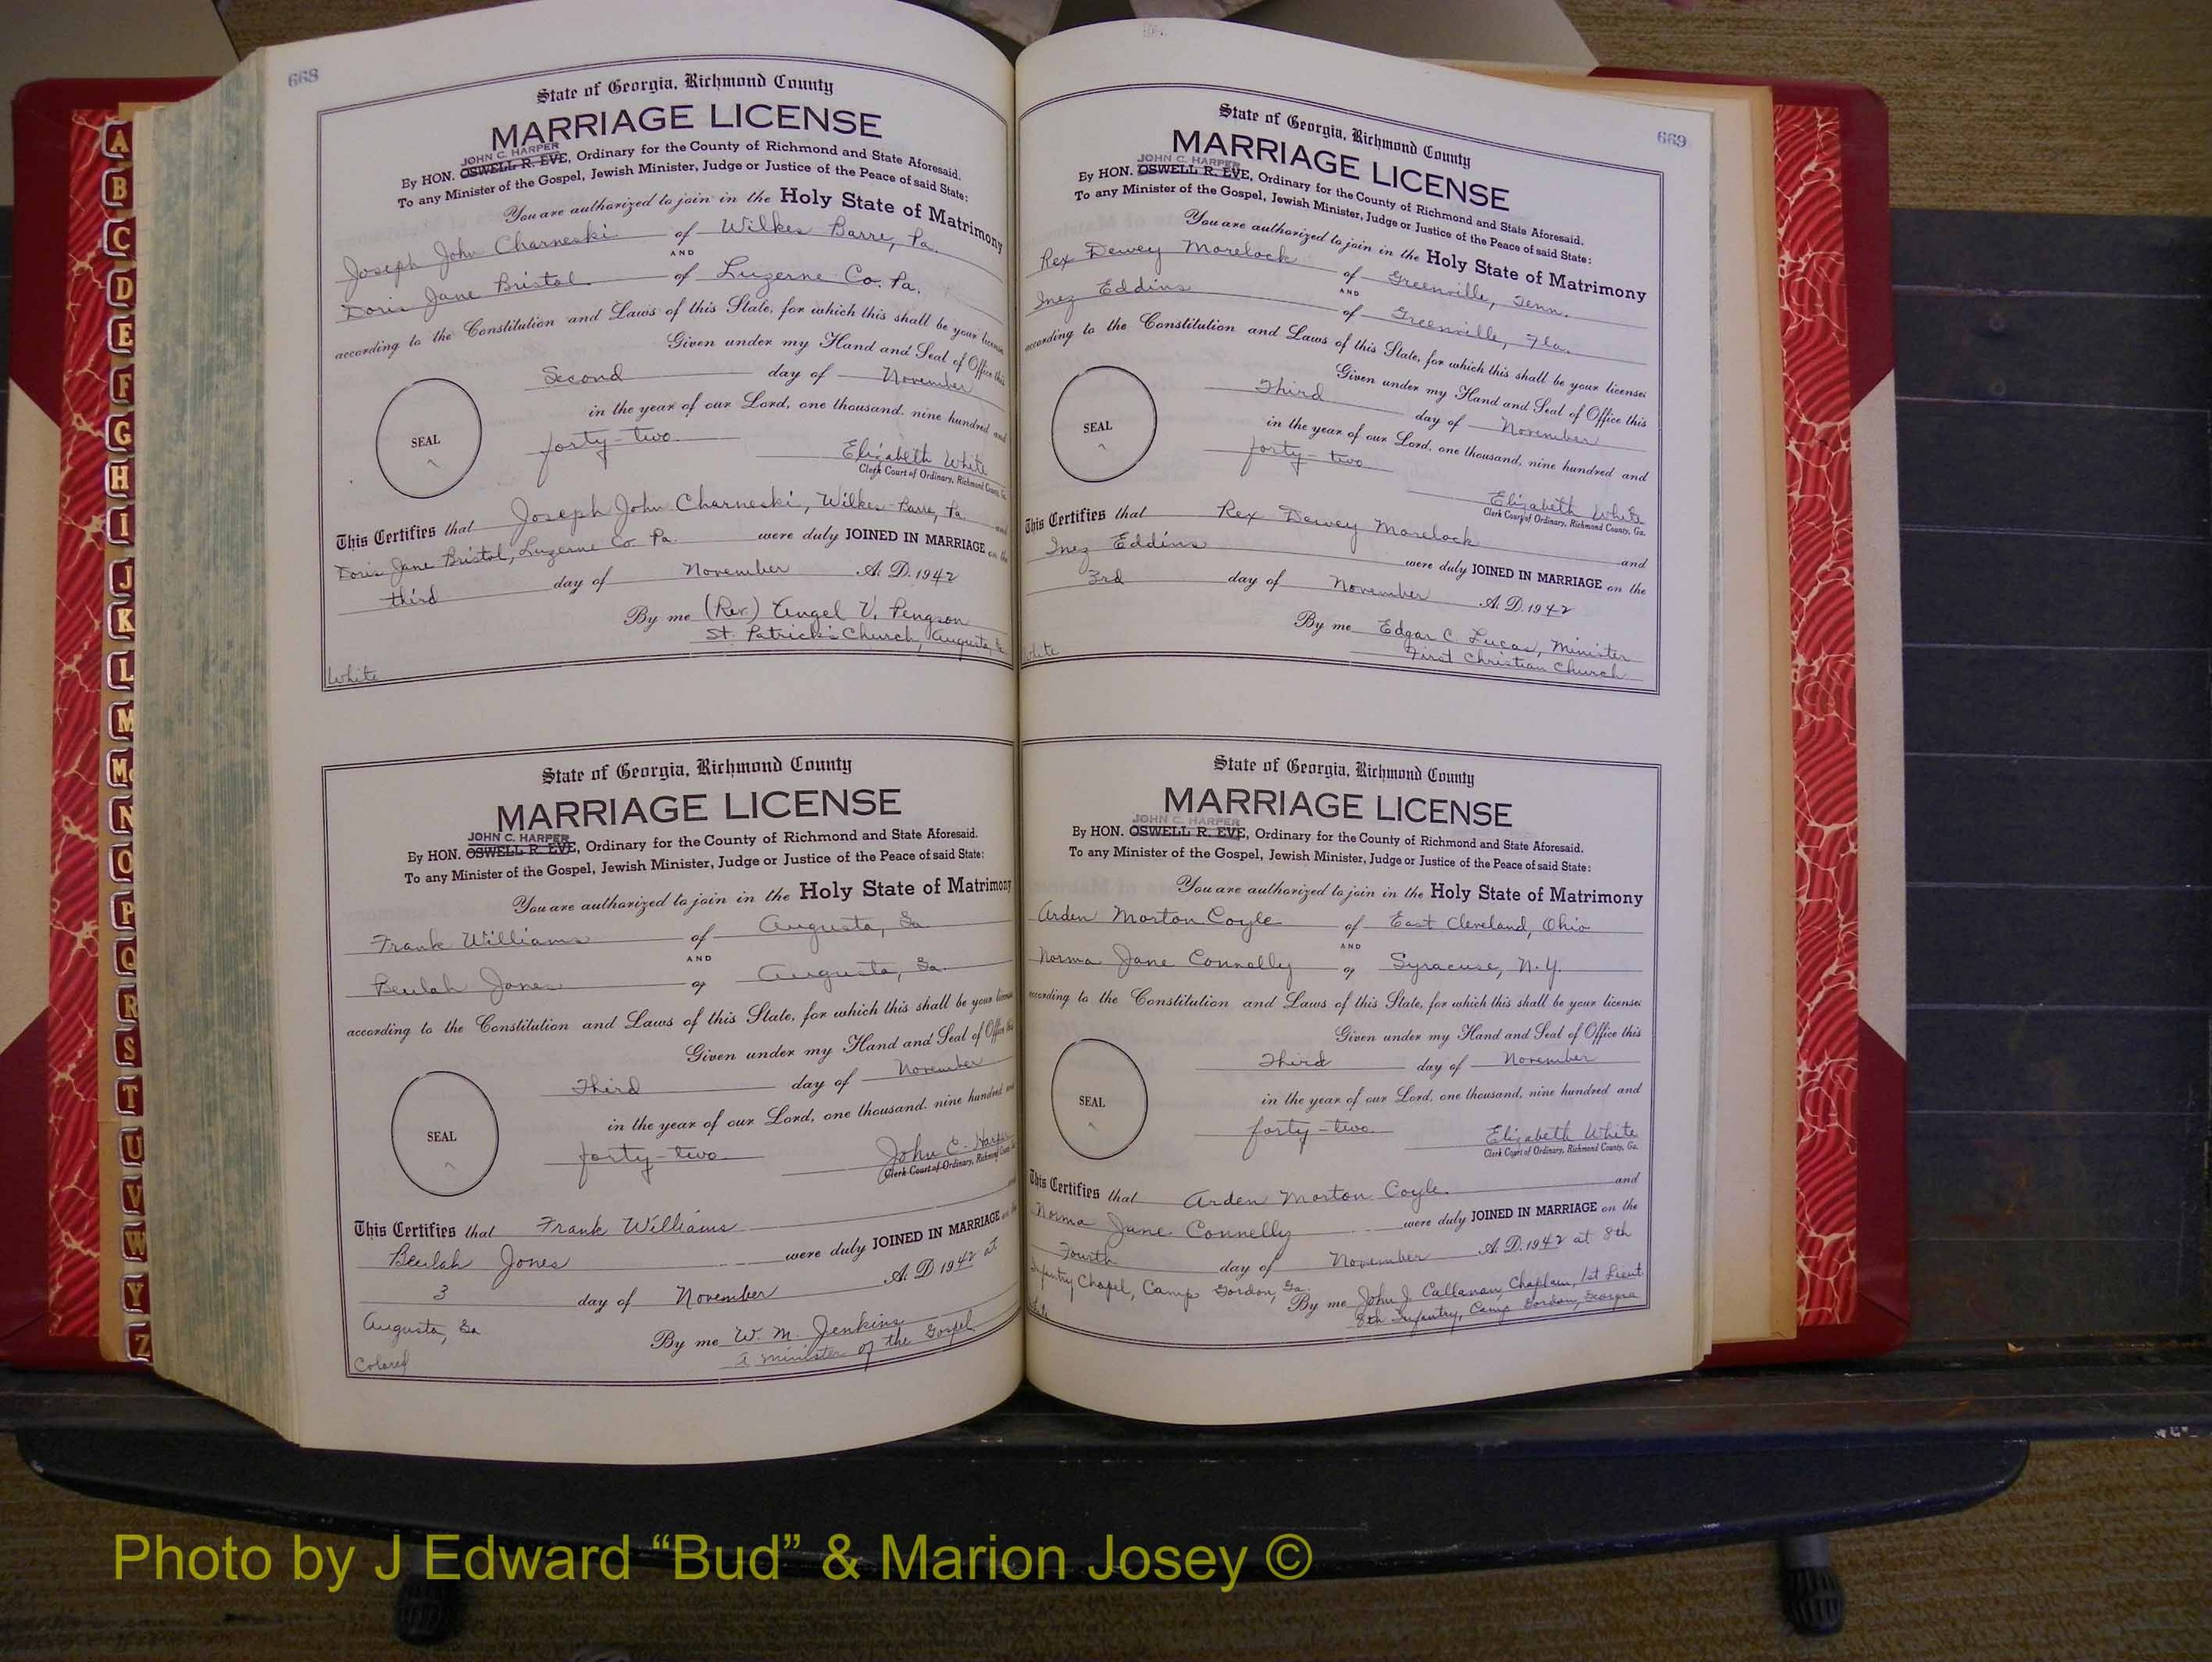 668
State of Georgia, Richmond County
MARRIAGE LICENSE
JOHN C. HARPER
By HON. OSWELL R. EVE, Ordinary for the County of Richmond and State Aforesaid.
To any Minister of the Gospel, Jewish Minister, Judge or Justice of the Peace of said State:
You are authorized to join in the Holy State of Matrimony
Joseph John Charneski of Wilkes Barre, Pa.
AND
Doris Jane Bristol of Luzerne Co. Pa.
according to the Constitution and Laws of this State, for which this shall be your license
Given under my Hand and Seal of Office this
Second day of November
in the year of our Lord, one thousand, nine hundred and
SEAL
forty-two
Elizabeth White
Clerk Court of Ordinary, Richmond County, Ga.
This Certifies that Joseph John Charneski, Wilkes-Barre, Pa and
Doris Jane Bristol, Luzerne Co Pa were duly JOINED IN MARRIAGE on the
third day of November A. D. 1942
By me (Rev.) Angel V. Pengson
St. Patrick's Church, Augusta, Ga
White
State of Georgia, Richmond County
MARRIAGE LICENSE
JOHN C. HARPER
By HON. OSWELL R. EVE, Ordinary for the County of Richmond and State Aforesaid.
To any Minister of the Gospel, Jewish Minister, Judge or Justice of the Peace of said State:
You are authorized to join in the Holy State of Matrimony
Frank Williams of Augusta, Ga
AND
Beulah Jones of Augusta, Ga.
according to the Constitution and Laws of this State, for which this shall be your license
Given under my Hand and Seal of Office this
Third day of November
in the year of our Lord, one thousand, nine hundred and
SEAL
forty-two
John C. Harper
Clerk Court of Ordinary, Richmond County, Ga.
This Certifies that Frank Williams and
Beulah Jones were duly JOINED IN MARRIAGE on the
3 day of November A. D. 1942 at
Augusta, Ga
By me W. M. Jenkins
a minister of the Gospel
Colored
669
State of Georgia, Richmond County
MARRIAGE LICENSE
JOHN C. HARPER
By HON. OSWELL R. EVE, Ordinary for the County of Richmond and State Aforesaid.
To any Minister of the Gospel, Jewish Minister, Judge or Justice of the Peace of said State:
You are authorized to join in the Holy State of Matrimony
Rex Dewey Morelock of Greenville, Tenn.
AND
Inez Eddins of Greenville, Fla.
according to the Constitution and Laws of this State, for which this shall be your license
Given under my Hand and Seal of Office this
Third day of November
in the year of our Lord, one thousand, nine hundred and
SEAL
forty-two
Elizabeth White
Clerk Court of Ordinary, Richmond County, Ga.
This Certifies that Rex Dewey Morelock and
Inez Eddins were duly JOINED IN MARRIAGE on the
3rd day of November A. D. 1942
By me Edgar C. Lucas, Minister
First Christian Church
White
State of Georgia, Richmond County
MARRIAGE LICENSE
JOHN C. HARPER
By HON. OSWELL R. EVE, Ordinary for the County of Richmond and State Aforesaid.
To any Minister of the Gospel, Jewish Minister, Judge or Justice of the Peace of said State:
You are authorized to join in the Holy State of Matrimony
Arden Morton Coyle of East Cleveland, Ohio
AND
Norma Jane Connelly of Syracuse, N.Y.
according to the Constitution and Laws of this State, for which this shall be your license
Given under my Hand and Seal of Office this
Third day of November
in the year of our Lord, one thousand, nine hundred and
SEAL
forty-two
Elizabeth White
Clerk Court of Ordinary, Richmond County, Ga.
This Certifies that Arden Morton Coyle and
Norma Jane Connelly were duly JOINED IN MARRIAGE on the
Fourth day of November A. D. 1942 at 8th
Infantry Chapel, Camp Gordon, Ga.
By me John J. Callanan, Chaplain, 1st Lieut.
8th Infantry, Camp Gordon, Georgia
White
A
B
C
D
E
F
G
H
I
J
K
L
M
Mc
N
O
P
Q
R
S
T
U
V
W
Y
Z
Photo by J Edward “Bud” & Marion Josey ©